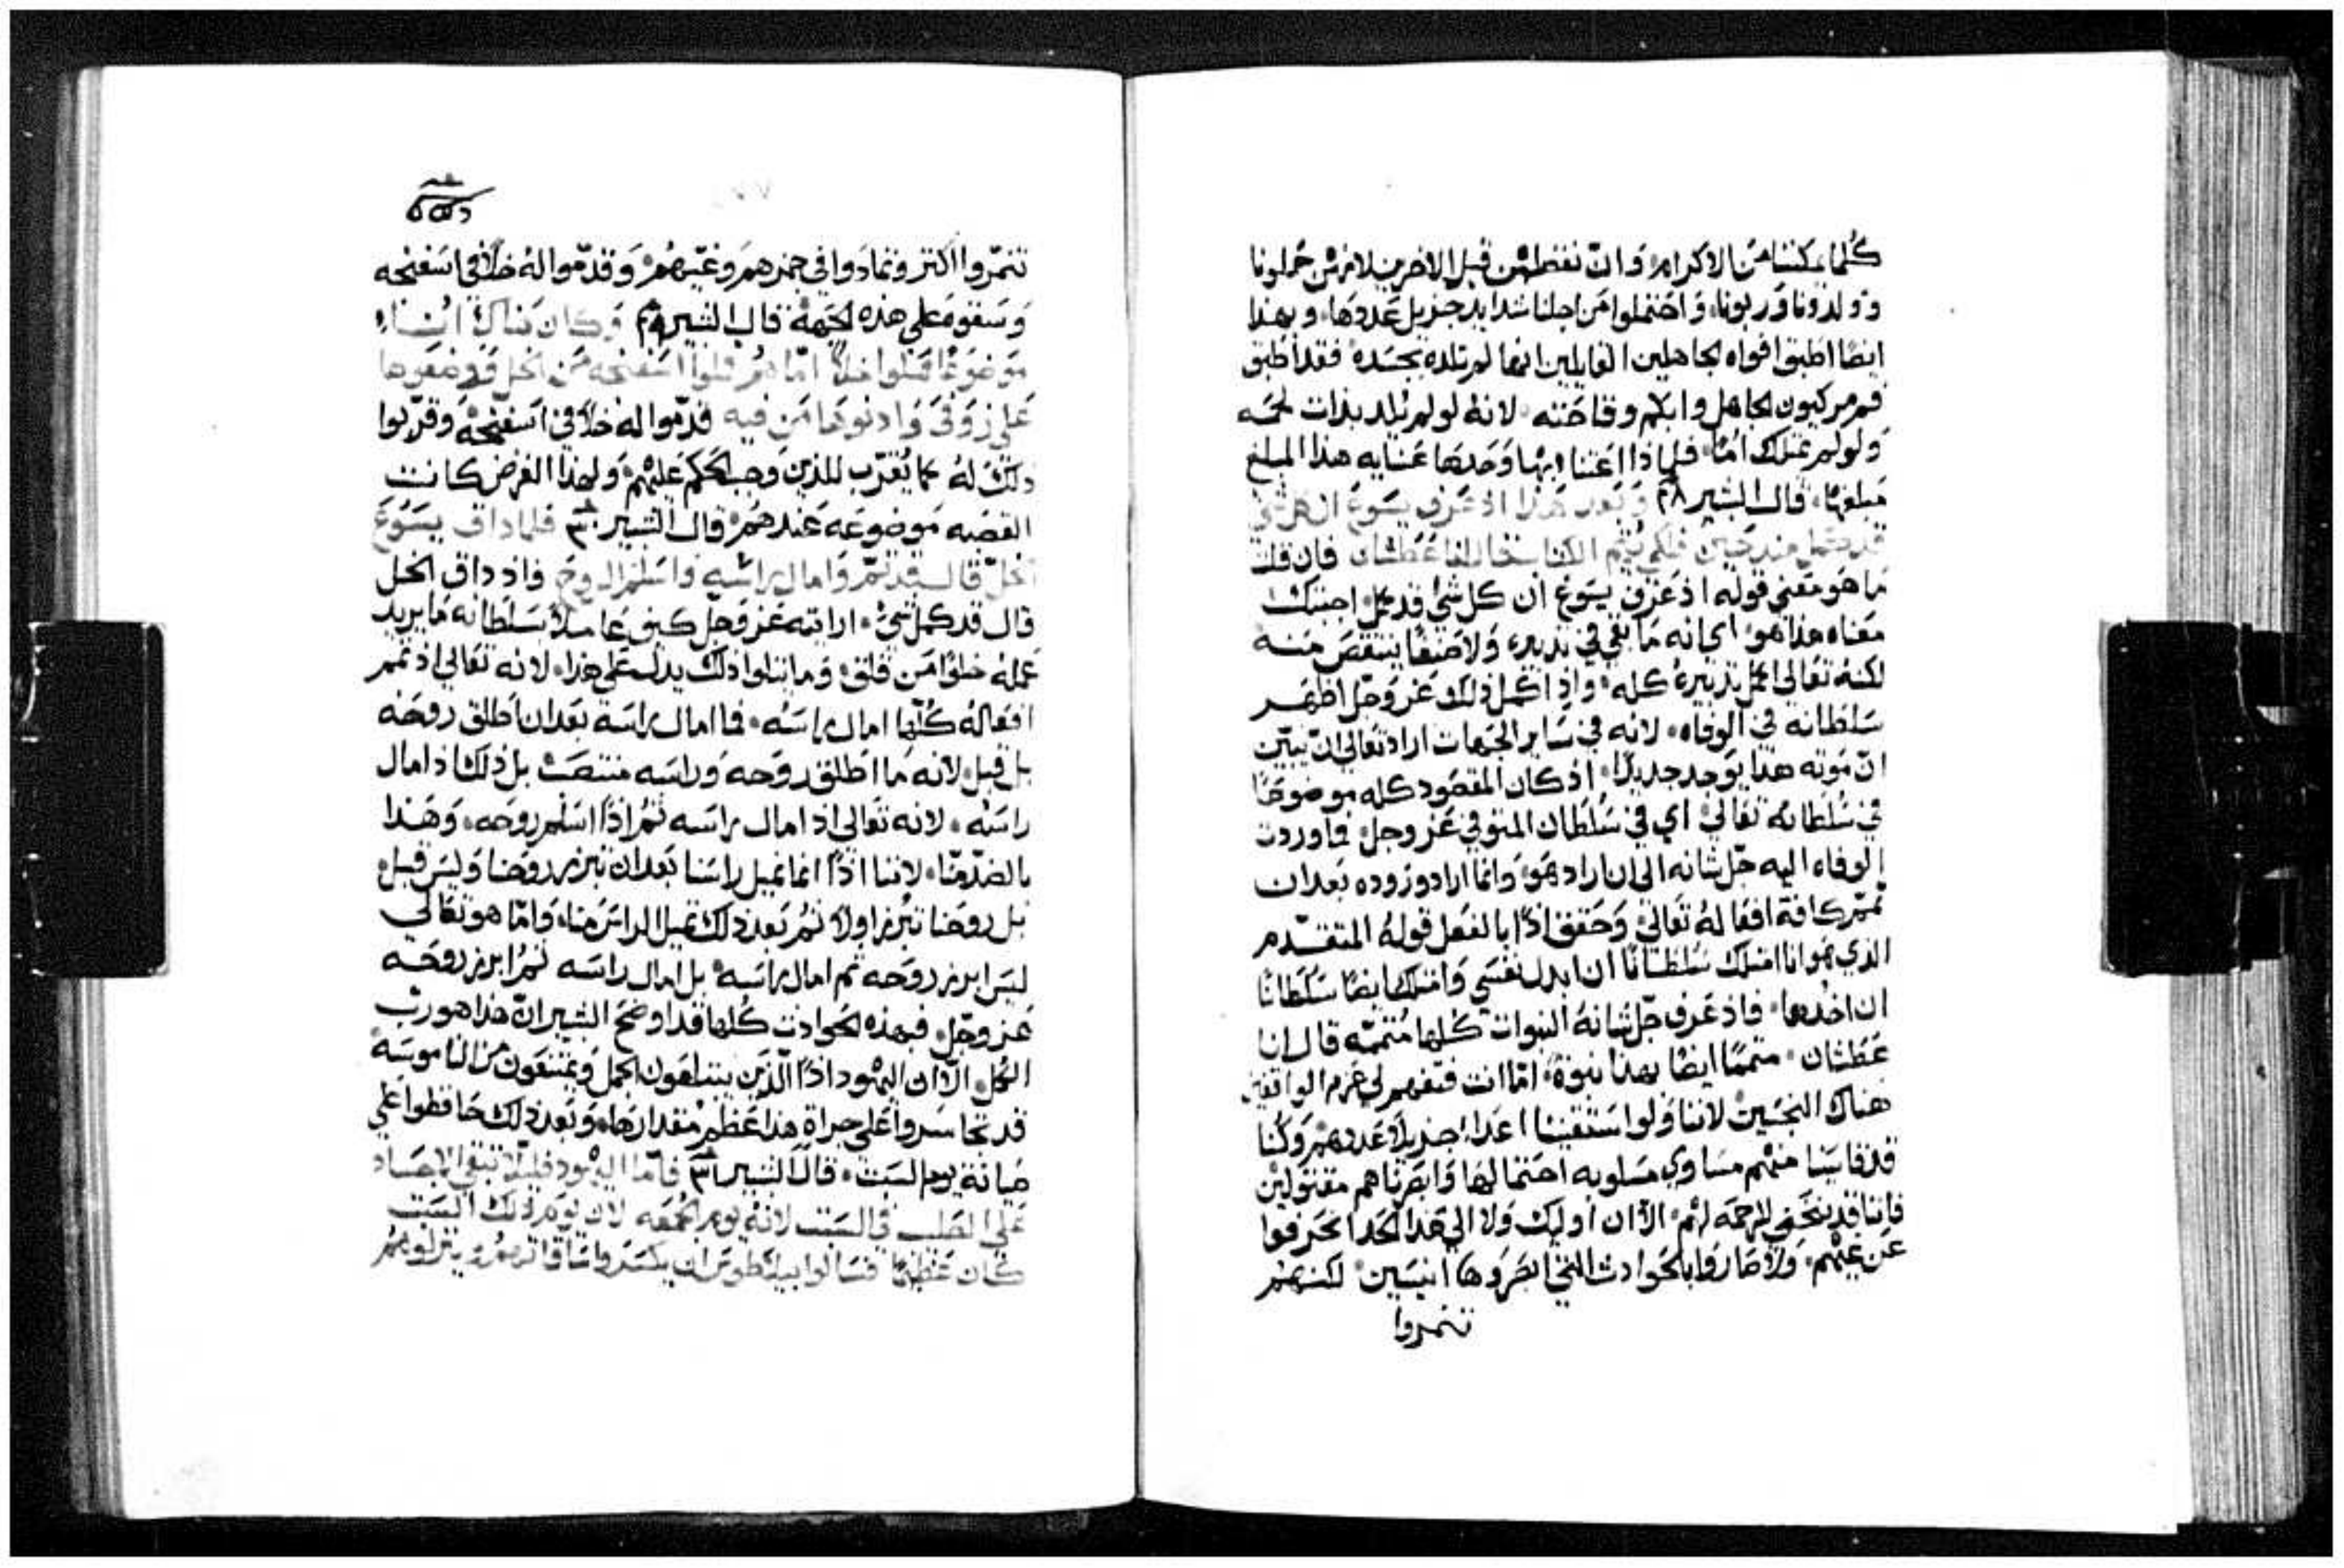 كُلما يمكننا من الاكرام، وَان نفضلهن قبل الاخرين لانهن حملونا
وولدونا وَربونا، وَاحتملوا من اجلنا شدايد جزيل عَددها، وبهذا
ايضًا اطبق افواه الجاهلين القايلين انها لم تلده بجسَده، فقد اطبق
فم مركيون الجاهل وابكم وقاحَته، لانهُ لو لم تلد بذات لحمه
وَلو لم تمتلك امًا، فلماذا اعتنا بها وَحدها عنايه هذا المبلغ
مبلغها، قال البشير ٢٨ وَبعد هَذا اذ عَرف يسَوع ان كل شي
قد كمل منذ حين فلكي يتم الكتاب قال انا عَطشان فان قلت
مَا هو مَعني قوله اذ عَرف يسَوع ان كل شي قد كمل، اجبتك
مَعناه هذا هو، اي انه مَا بقي في تدبيره وَلا صنفًا ينتقص منه
لكنهُ تعَالى اكمل تدبيرهُ كله، وَاذ اكمل ذلك عَز وَجل اظهر
سَلطانه في الوفاه، لانه في سَاير الجهات اراد تعالى ان يبيّن
انّ مَوته هذا يوَجد جديدًا، اذ كان المقصَود كله موضوعًا
في سُلطانه تعَالي، اي في سُلطان المتوفي عَز وجل، فما وردت
الوفاه اليه جَل شانه الى ان اراد هَو، وَانما اراد وروده بَعد ان
تمم كافة افعَالهُ تعَالى، وَحَقق اذًا بالفعَل قولهُ المتقدّم
الذي هو انا امتلك سُلطانًا ان ابدل نفسَي وَامتلك ايضًا سَلطانًا
ان اخدها، فاذ عَرف جَل شانهُ النبوات كلها مُتممّه قال انا
عَطشان، متممًا ايضًا بهذا نبوة، امّا انت فتفهم لي عَزم الواقفين
هناك النجسَين، لاننا وَلو استقنينا اعدا جزيلاً عَددهم وَكُنا
قد قاسَينا منهم مسَاوي مسَلوبه احتمالها وَابصَرناهم مقتولين
فاننا قد ننحني لرحمَة لهم، الاّ ان اوليك وَلا الى هَذا الحَد انحَرفوا
عَن عَيّهم، وَلا صَاروا بالحَوادث التي ابصَروها انيسَين، لكنهم
تنمروا
تنمّروا اكثر وتمادَوا في حمزهم وَغيّهم، وَقدمّوا لهُ خلاً في اسَفنجه
وَسَقوه عَلي هذه الجهة، قال البشير ٢٩ وَكان هناك اناء
موَضوَعًا مملوا خلاً امّا هُم فملوا اسَفنجه من الخل وَوضعَوها
عَلي زوفي وَادنوها من فيه قدمّوا له خلاً في اسَفنجه وَقرّبوا
ذلك له كما يُقرّب للذين وجب الحَكم عَليهم، وَلهذا الغرض كانت
القصَبه مَوضوعَة عَندهُم، قال البشير ٣٠ فلما داق يسَوَع
الخل قال قد تمّ وَامال براسَه وَاسلم الروح فاذ داق الخل
قال قد كمل شي، ارايته عَز وَجل كيف عَاملاً سَلطانه مَا يريد
عَمله خلوًا من قلق، وَما يتلوا ذلك يدل عَلي هذا، لانه تعَالي اذ تمم
افعَالهُ كُلّها امال براسَه، فما امال براسَه بَعد ان اطلق روحَه
بل قبل، لانه مَا اطلق روحَه وَراسَه منتصَب بل ذلك اذ امال
راسَه، لانه تعَالى اذ امال براسَه ثم اذًا اسَلم روحَه، وَهَذا
بالضدّ منّا، لاننا اذًا انما نميل راسَنا بَعد ان تبرز روحَنا وَليس قبل،
بل روحَنا تبرُز اولاً ثم بَعد ذلك تميل الراسَ منا، وَامّا هو تعَالى
ليسَ ابرز روحَه ثم امال براسَه، بل امال راسَه ثم ابرز روحَه
عَز وجَل، فبهذه الحَوادث كُلها قد اوضحَ البشير ان هَذا هو رب
الكُل، الاّ ان اليهود اذًا الّذين يبتلعَون الجمل وَيمتنعَون من الناموسَه
قد تجاسَروا عَلي جراة هذا عَظم مقدارها، وَبعد ذلك حَافظوا عَلي
صَيانة يوم السَبت، قال البشير ٣١ فامّا اليهود فليلا تبقي الاجسَاد
عَلي الصَلب في السَبت لانه يوم الجُمعَه لان يوَم ذلك السَبت
كان عَظيمًا فسَالوا بيلاطوس ان يكسَروا سَاقاتهم وينزلوهم